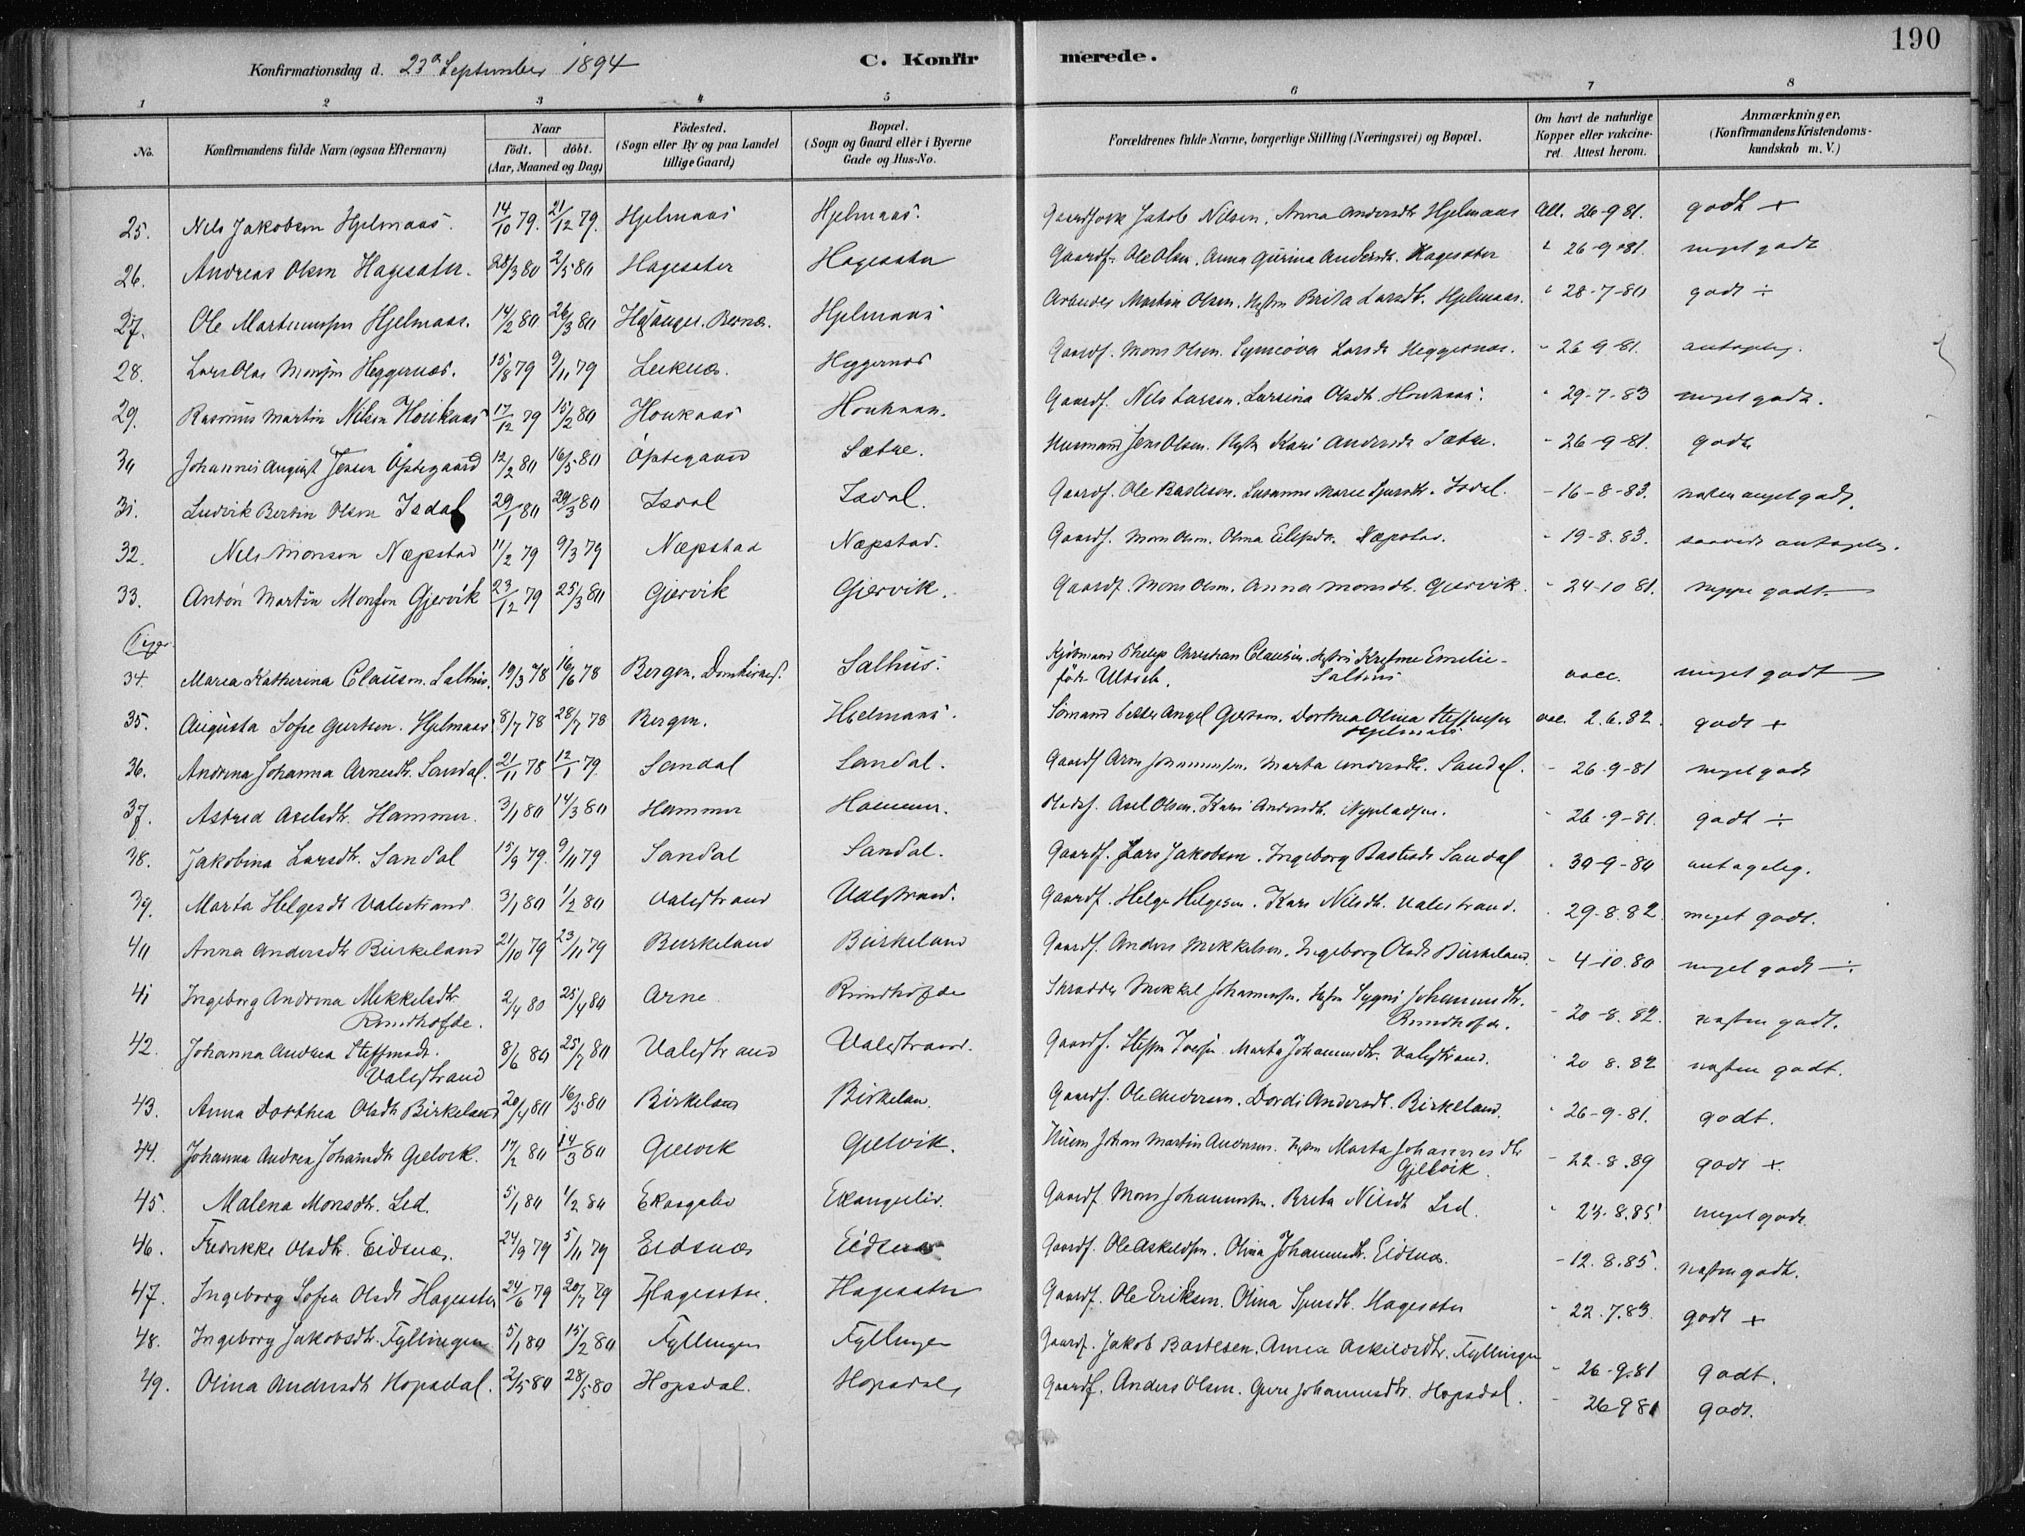 190
Konfirmationsdag d. 23d September 1894
C. Konfirmerede.
1 2 3 4 5 6 7 8
No.
Konfirmandens fulde Navn (ogsaa Efternavn)
Naar
födt. döbt.
(Aar, Maaned og Dag)
Födested.
(Sogn eller By og paa Landet
tillige Gaard)
Bopæl.
(Sogn og Gaard eller i Byerne
Gade og Hus-No.
Forældrenes fulde Navne, borgerlige Stilling (Næringsvei) og Bopæl.
Om havt de naturlige
Kopper eller vakcine-
ret. Attest herom.
Anmærkninger.
(Konfirmandens Kristendoms-
kundskab m. V.)
25. Nils Jakobsen Hjelmaas. 14/10 79. 21/12 79. Hjelmaas Hjelmaas. Jakob Nilsen. Anna Andersdtr Hjelmaas Att. 26-9 81. godt +
26. Andreas Olsen Hagesæter. 28/3 80 2/5 80 Hagesæter Hagesæter Gaardf. Ole Olsen. Anna Gurina Andersdtr. Hagesæter " 26-9-81. meget godt
27. Ole Martinussen Hjelmaas. 14/2 80 26/3 80 Hjelmaas Martin Olsen. Hustru Brita Larsdtr. Hjelmaas. " 28-7-80 godt ÷
28. Lars Olai Monsen Heggernæs. 15/8 79 9/11 79 Leiknæs. Heggernæs Gaardf. Mons Olsen. Larsdtr Heggernæs. - 26-9-81. antagelig.
29. Rasmus Martin Nilsen Houkaas 17/12 79 15/2 80 Houkaas Houkaas. Gaardf. Nils Larsen. Olsdtr. Houkaas. " 29-7-83 meget godt.
30 Johannes August Jensen Öptegaard 12/2 80 16/5 80 Öptegaard Sætre. Husmand Jens Olsen. Hustr Kari Andersdtr Sætre. - 26-9-81. godt
31. Ludvik Bertin Olsen Isdal 29/1 80 29/3 80 Isdal Isdal. Gaardf. Ole Bastesen. Susanne Marie Isdal. - 16-8-83. næsten meget godt.
32. Nils Monsen Næpstad 11/2 79 9/3 79 Næpstad Næpstad. Gaardf. Mons Olsen. Næpstad. - 19-8.83. antagelig.
33. Anton Martin Monsen Gjervik 23/12 79 25/3 80 Gjervik Gjervik. Gaardf. Mons Olsen. Anna Monsdtr. Gjervik. - 24-10 81. neppe godt
Piger
34. Maria Katherina Clausen. Salhus. 19/3 78 16/6 78 Bergen. Domkirkes. Salhus. Kjöbmand Philip Christian Clausen. Hustru Emelie
föd Salhus vacc. meget godt
35. Augusta Sofie Gjertsen. Hjelmaas 8/7 78 28/7 78 Bergen. Hjelmaas. Sömand Dorthea Olina Steffensen
Hjelmaas vac. 2.6.82. godt +
36. Andrina Johanna Arnesdtr. Sandal. 21/11 78 12/1 79. Sandal Sandal. Gaardf Arne Johannessen. Marta Andersdtr. Sandal. - 26-9-81 meget godt
37. Astrid Axelsdtr. Hammer. 3/1 80 14/3 80 Hammer Hammer. Axel Olsen. Kari Andersdtr. - 26-9-81. godt ÷
38. Jakobina Larsdtr. Sandal 15/9 79. 9/11 79 Sandal Sandal. Gaardf. Lars Jakobsen. Ingeborg Bastesdtr Sandal " 30-9-80 antagelig.
39. Marta Helgesdtr Valestrand 3/1 80 1/2 80 Valestrand Valestrand. Gaardf. Helge Helgesen. Kari Nilsdtr. Valestrand. " 29.8.82. meget godt.
40 Anna Andersdtr Birkeland 21/10 79 23/11 79 Birkeland Birkeland Gaardf. Anders Mikkelsen. Ingeborg Olsdtr Birkeland. " 4-10.80 meget godt ÷
41 Ingeborg Andrina Mikkelsdtr.
Rundhofde. 2/4 80 25/4 80 Arne Rundhofde Skrædder Mikkel Johannessen. Hustru Johannesdtr.
Rundhofde. " 20-8.82. næsten godt.
42. Johanna Andrea Steffensdtr.
Valestrand 8/6 80 25/7 80 Valestrand Valestrand. Gaardf. Steffen Iversen. Marta Johannesdtr. Valestrand. " 20 8.82 næsten godt.
43. Anna Dorthea Olsdtr Birkeland 20/4 80 16/5 80 Birkeland Birkelan. Gaardf. Ole Andersen. Dordi Andersdtr. Birkeland. " 26-9-81. godt.
44. Johanna Andrea Johansdtr Gjelvik. 17/2 80 14/3 80 Gjelvik Gjelvik. Husm Johan Martin Andersen. Hustru Marta Johannesdtr
Gjelvik. - 22.8.89 godt +.
45. Malena Monsdtr. Lid. 5/1 80 1/2 80 Gaardf. Mons Johannessen. Brita Nilsdtr Lid. " 23.8.85 meget godt
46. Fredrikke Olsdtr. Eidsnæs. 24/9 79 5/11 79 Eidsnæs Eidsnæs Gaardf. Ole Askeldsen. Olina Johannesdtr. Eidsnæs. - 12.8.85. næsten godt.
47. Ingeborg Sofia Olsdtr Hagesæter 24/6 79 20/7 79 Hagesæter. Hagesæter Gaardf. Ole Eriksen. Olina Hagesæter " 22.7.83. godt +
48. Ingeborg Jakobsdtr. Fyllingen 5/1 80 15/2 80 Fyllingen Fyllingen Gaardf. Jakob Bastesen. Anna Askildsdtr. Fyllingen - 26-9.81 godt.
49. Olina Andersdtr Hopsdal. 2/5 80 28/5 80 Hopsdal. Hopsdal Gaardf. Anders Olsen. Guri Johannesdtr. Hopsdal. - 26 9 81 godt.